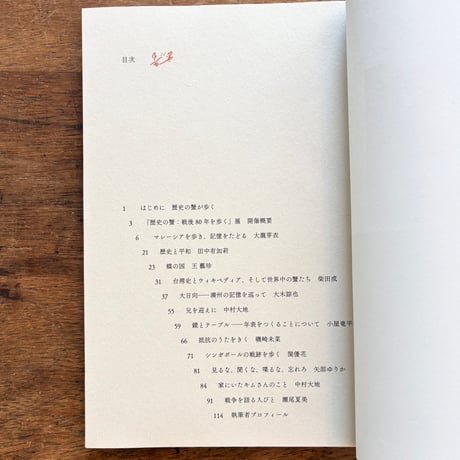 目次
1 はじめに 歴史の蟹が歩く
3 「歴史の蟹:戦後80年を歩く」展 開催概要
6 マレーシアを歩き、記憶をたどる 大瀧芽衣
21 歴史と平和 田中有加莉
23 蝶の国 王藝珍
31 台湾史とウィキペディア、そして世界中の蟹たち 柴田成
37 大日向——満州の記憶を巡って 大木諒也
55 兄を迎えに 中村大地
59 鏡とテーブル——年表をつくることについて 小屋竜平
66 抵抗のうたをきく 磯崎未菜
71 シンガポールの戦跡を歩く 関優花
81 見るな、聞くな、喋るな、忘れろ 矢部ゆりか
84 家にいたキムさんのこと 中村大地
91 戦争を語る人びと 瀬尾夏美
114 執筆者プロフィール